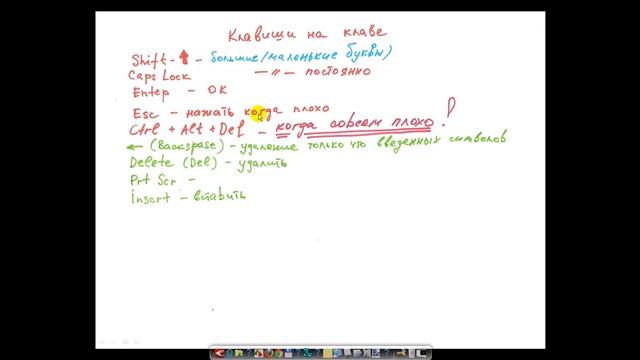 Клавиши на клаве
Shift - ↑ - большие/маленькие буквы)
Caps Lock — 〃 — постоянно
Ентер - ОК
Esc - нажать когда плохо
Ctrl + Alt + Del - когда совсем плохо!
← (Backspase) - удаление только что введенных символов
Delete (Del) - удалить
Prt Scr -
insert - вставить